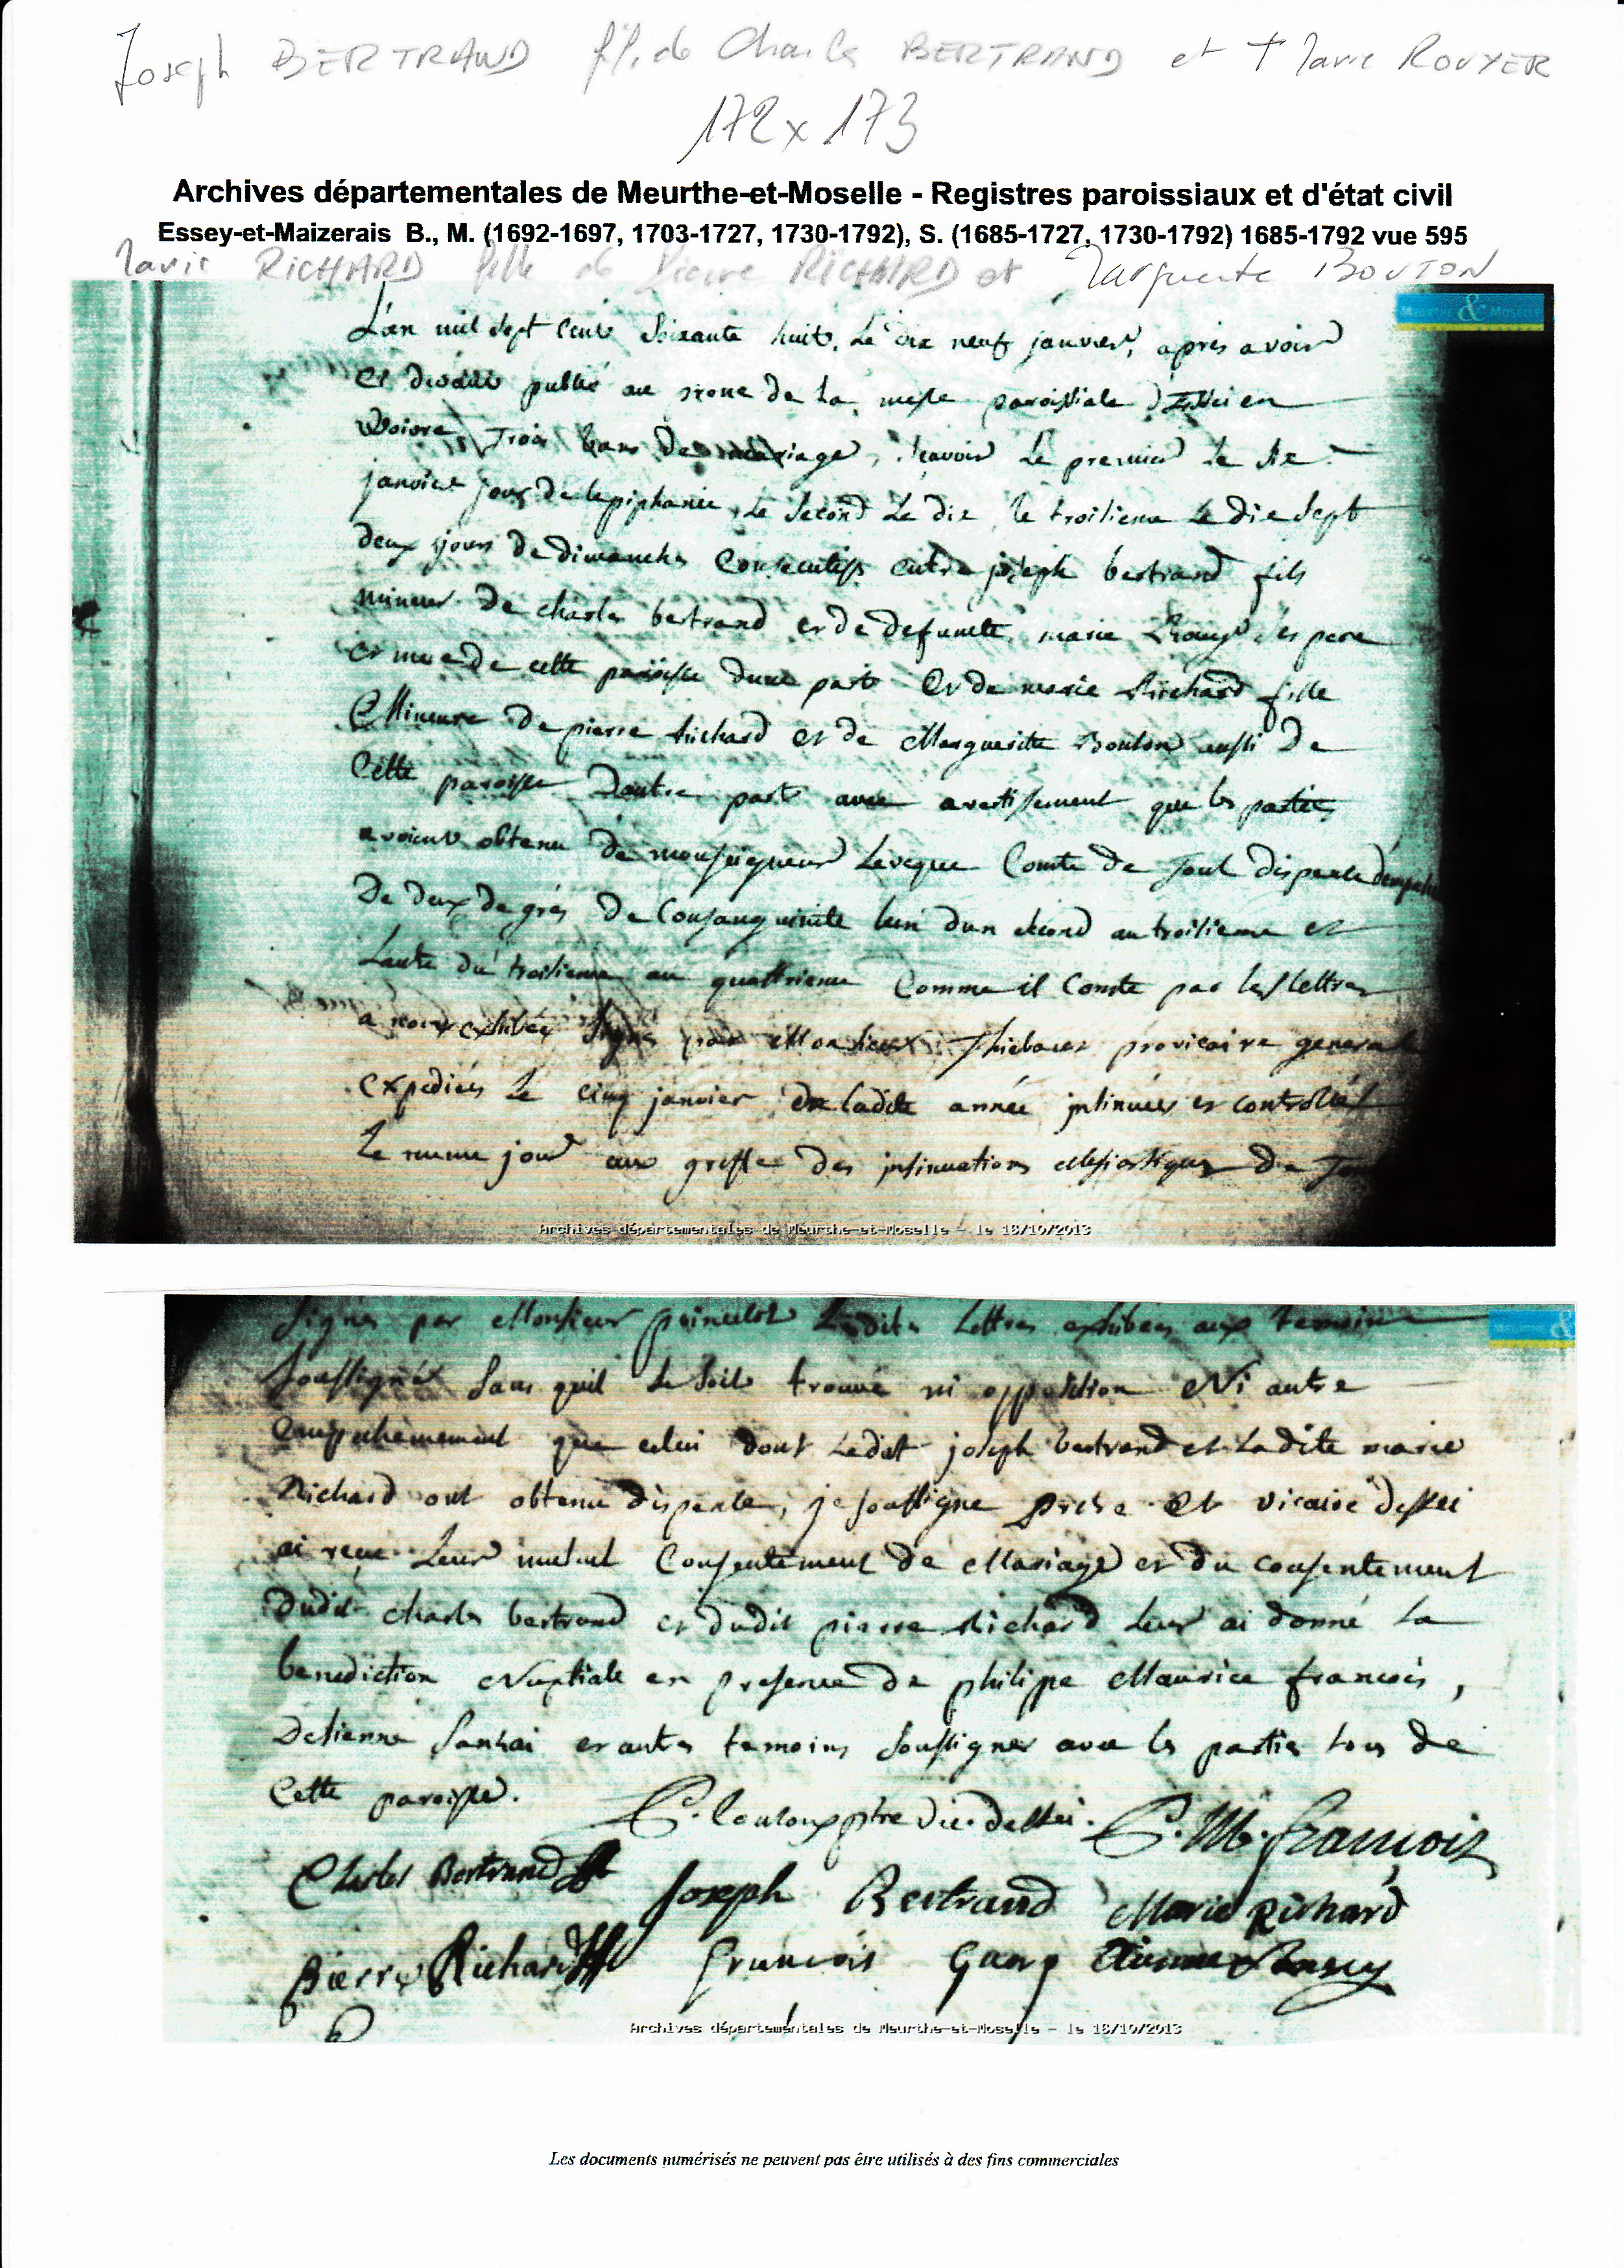 Joseph BERTRAND f. de Charles BERTRAND et † Marie ROUYER
172 x 173
Archives départementales de Meurthe-et-Moselle - Registres paroissiaux et d'état civil
Essey-et-Maizerais B., M. (1692-1697, 1703-1727, 1730-1792), S. (1685-1727, 1730-1792) 1685-1792 vue 595
Marie RICHARD fille de Pierre RICHARD et Marguerite BOUTON
Meurthe & Moselle
L'an mil sept cent soixante huit, le dix neuf janvier, après avoir
publié au prone de la messe paroissiale d'Essei en
Woivre trois bans de mariage, sçavoir le premier le six
janvier jour de lepiphanie, le second le dix, le troisieme le dix sept
deux jours de dimanches consecutifs entre joseph bertrand fils
mineur de charles bertrand et de defuncte marie Rouyer, ses pere
et mere de cette paroisse dune part et de marie Richard fille
Mineure de pierre Richard et de Marguerite Bouton aussi de
Cette paroisse dautre part avec avertissement que les parties
avoient obtenu de monseigneur Leveque Comte de Toul dispense
de deux degrés de Consanguinité lun du second au troisieme et
Lautre du troisieme au quattrieme Comme il Conste par les lettres
a nous exhibées signé par Monsieur Thiebaut provicaire general
expediées le cinq janvier de ladite année insinuées et controllées
le meme jour aux greffe des insinuations eclesiastiques de
Archives départementales de Meurthe-et-Moselle - le 18/10/2013
signés par Monsieur lesdites lettres exhibées aux temoins
soussignés sans quil se soit trouvé ni opposition Ni autre
empechemement que celui dont ledit joseph bertrand et ladite marie
Richard ont obtenu dispense, je soussigné pretre et vicaire dessei
ai reçu leur mutuel Consentement de Mariage et du consentement
dudit charles bertrand et dudit pierre Richard leur ai donné la
benediction Nuptiale en presence de philippe Maurice francois,
Detienne et autres temoins soussignes avec les parties tous de
Cette paroisse. ptre vic. dessei. P. M. francois
Charles Bertrand Joseph Bertrand Marie Richard
Pierre Richard francois
Archives départementales de Meurthe-et-Moselle - le 18/10/2013
Les documents numérisés ne peuvent pas être utilisés à des fins commerciales